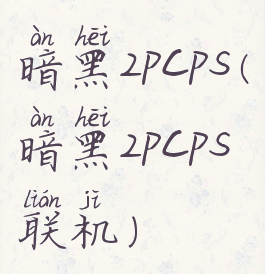 àn hēi
暗黑2PCPS(
àn hēi
暗黑2PCPS
lián jī
联机)